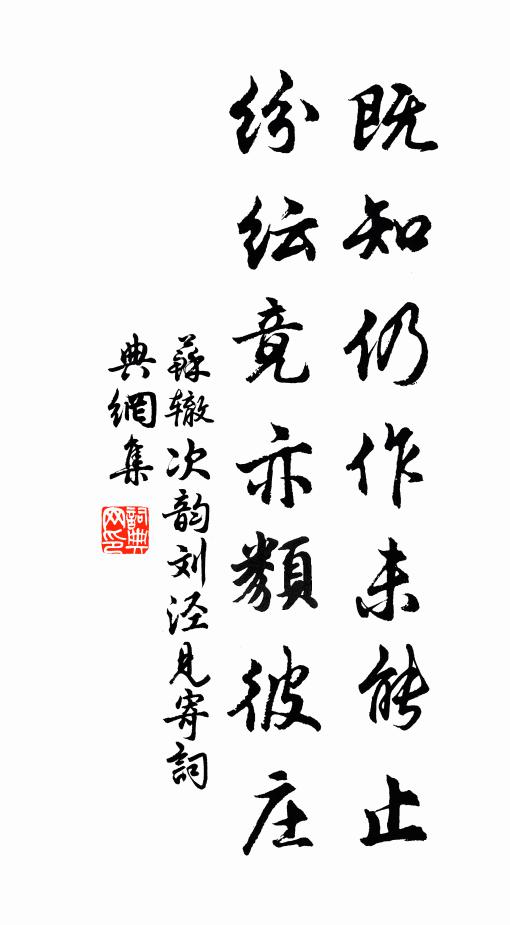 既知仍作未能止
纷纭竟亦類彼庄
蘇辙次韵刘泾見寄詞
典網集
詞典
网印